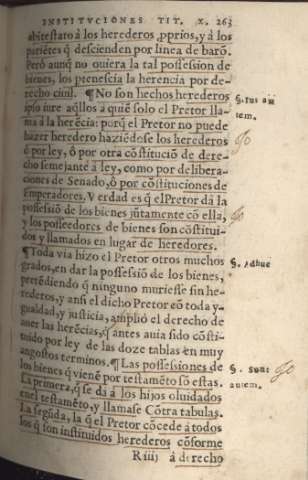 INSTITVCIONES TIT. X. 263
abītestato á los herederos ,pprios, y á los
pariētes q̄ descienden por linea de barō.
Peró aunq̄ no ouiera la tal possession de
bienes, los pretenescia la herencia por de-
recho ciuil. ¶No son hechos herederos
ipso iure aq̄llos a quiē solo el Pretor lla-
ma á la herēcia: porq̄ el Pretor no puede
hazer heredero haziēdose los herederos
ó por ley, ó por otra cōstituciō de dere-
cho semejante á ley, como por delibera-
ciones de Senado, ó por cōstituciones de
Emperadores. Y verdad es q̄ el Pretor dá la
possessiō de los bienes jūtamente cō ella,
y los posseedores de bienes son cōstitui-
dos y llamados en lugar de heredores.
¶Toda via hizo el Pretor otros muchos
grados, en dar la possessiō de los bienes,
pretēdiendo q̄ ninguno muriesse sin he-
rederos, y ansi el dicho Pretor cō toda y-
gualdad, y justicia, amplió el derecho de
auer las herēcias, q̄ antes auia sido cōsti-
tuido por ley de las doze tablas en muy
angostos terminos. ¶Las possessiones de
los bienes q̄ vienē por testamēto sō estas.
La primera, q̄ se dá á los hijos oluidados
enel testamēto, y llamase Cōtra tabulas.
La segūda, la q̄ el Pretor cōcede á todos
los q̄ son instituidos herederos cōforme
R iiij á derecho
§. sus au
tem.
§. Adhuc
§. sunt
autem.